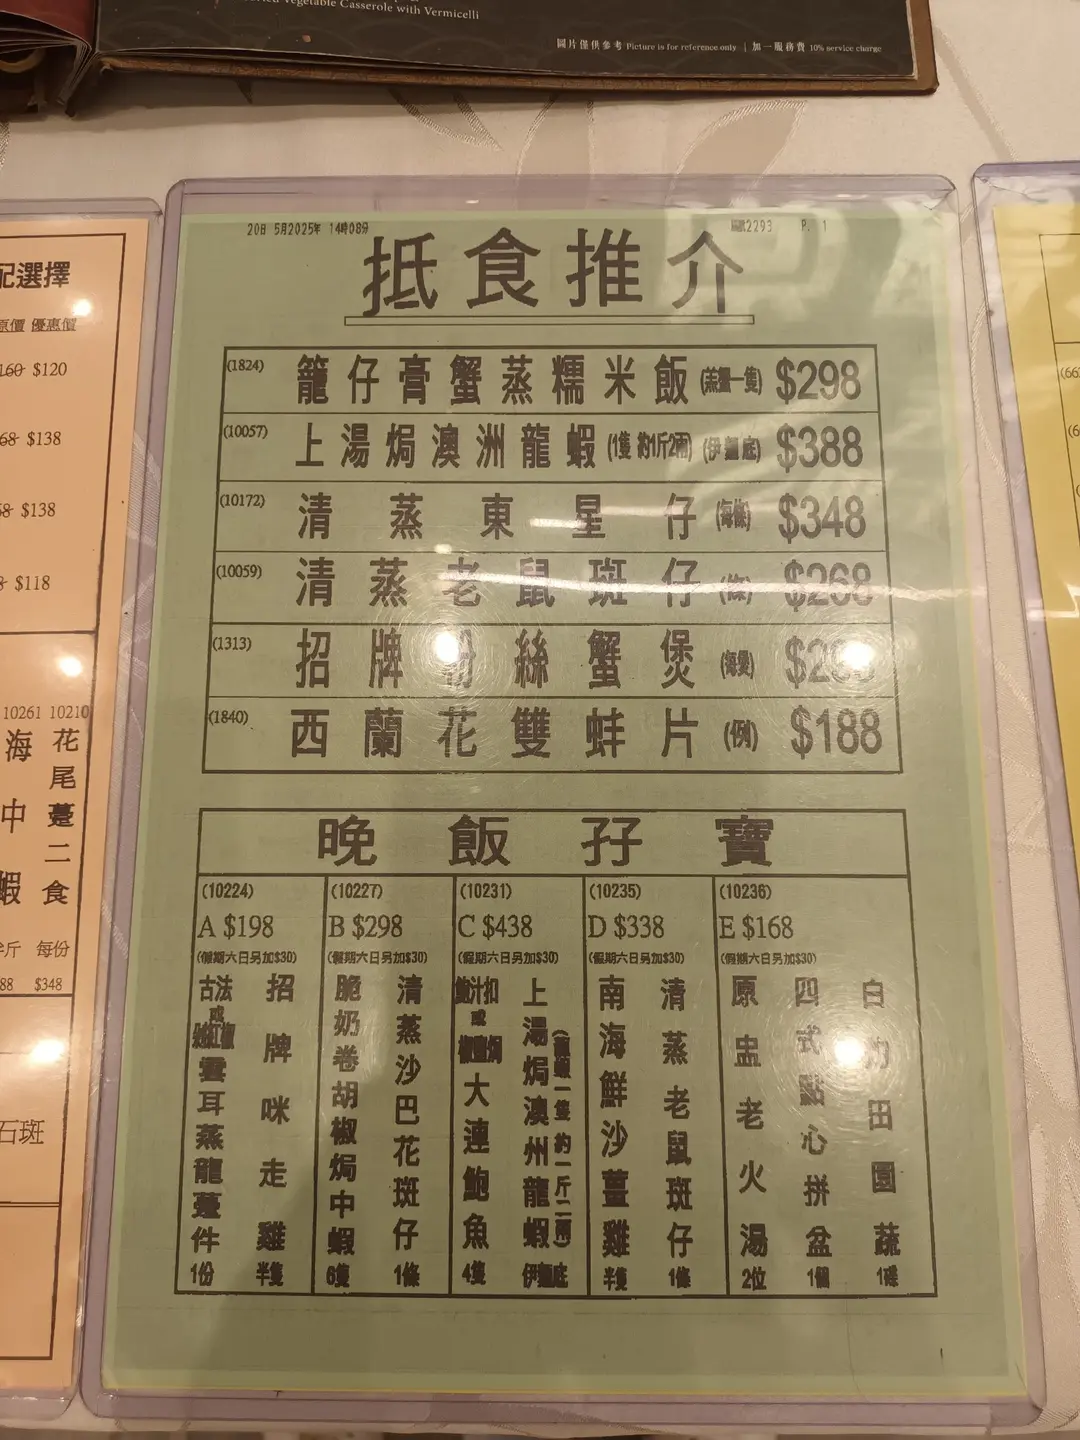 Vegetable Casserole with Vermicelli
圖片僅供參考 Picture is for reference only | 加一服務費 10% service charge
配選擇
原價 優惠價
160 $120
68 $138
$138
$118
10261 10210
海
中
蝦
花尾躉二食
每份
88 $348
石斑
20日 5月2025年 14時08分
2293 P. 1
抵食推介
(1824) 籠仔膏蟹蒸糯米飯 (羔蟹一隻) $298
(10057) 上湯焗澳洲龍蝦 (1隻 約1斤2兩) (伊麵底) $388
(10172) 清蒸東星仔 (每條) $348
(10059) 清蒸老鼠斑仔 (條) $268
(1313) 招牌粉絲蟹煲 (每煲)
(1840) 西蘭花雙蚌片 (例) $188
晚飯孖寶
(10224)
A $198
(假期六日另加$30)
招牌咪走雞 半隻
古法或 雲耳蒸龍躉件 1份
(10227)
B $298
(假期六日另加$30)
清蒸沙巴花斑仔 1條
脆奶卷胡椒焗中蝦 6隻
(10231)
C $438
(假期六日另加$30)
上湯焗澳州龍蝦 伊麵底
(龍蝦一隻約一斤二兩)
鮑汁扣或椒鹽焗大連鮑魚 4隻
(10235)
D $338
(假期六日另加$30)
清蒸老鼠斑仔 1條
南海鮮沙薑雞 半隻
(10236)
E $168
(假期六日另加$30)
白灼田園蔬 1碟
四式點心拼盆 1個
原盅老火湯 2位
(66
(6